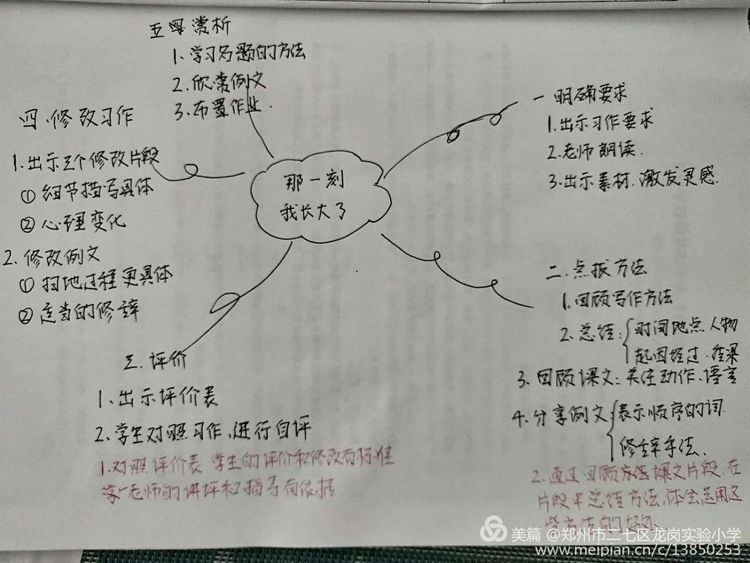 那一刻
我长大了
一 明确要求
1.出示习作要求
2.老师朗读.
3.出示素材.激发灵感.
二.点拨方法
1.回顾写作方法
2.总结:{时间地点 人物
起因经过.结果
3.回顾课文:关注动作.语言
4.分享例文:{表示顺序的词
修辞手法.
2.通过回顾 课文片段.在
片段中总结方法.体会运用这
三.评价
1.出示评价表
2.学生对照习作,进行自评
1.对照评价表 学生的评价和修改有标准
老师的讲评和指导有依据
四.修改习作
1.出示三个修改片段
①细节描写具体
②心理变化
2.修改例文
①扫地过程更具体
②适当的修辞
五 赏析
1.学习 题的方法
2.欣赏例文
3.布置作业.
美篇 @郑州市二七区龙岗实验小学
www.meipian.cn/c/13850253